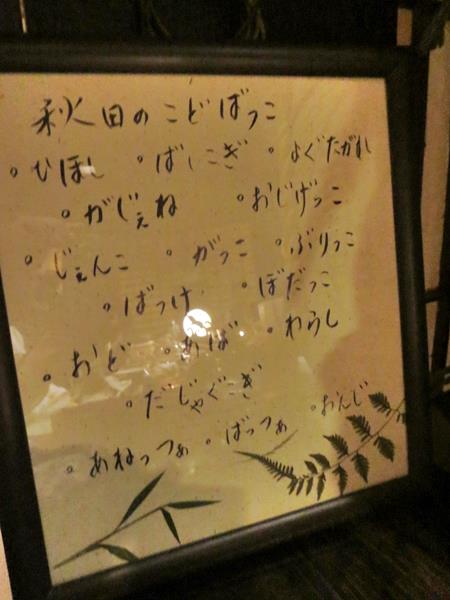 秋田のことばっこ
。ひほし 。ばしこぎ 。よぐたがれ
。がじぇね 。おじげっこ
。じぇんこ 。がっこ 。ぶりっこ
。ばっけ 。ぼだっこ
。おど 。あば 。わらし
。だじゃぐこぎ
。あねっつぁ 。ばっつぁ 。おんじ